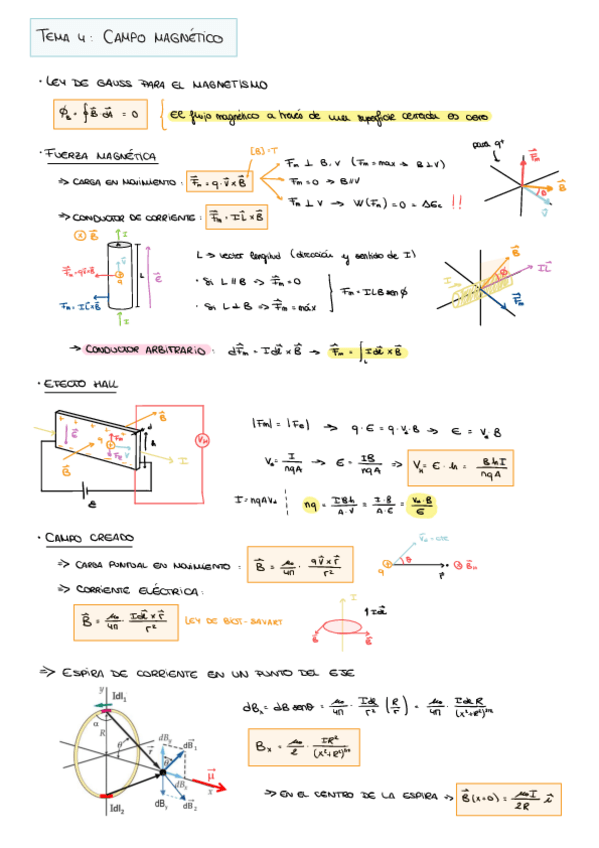 TEMA 4: CAMPO MAGNÉTICO
· LEY DE GAUSS PARA EL MAGNETISMO
Φ_B = ∮ B⃗ · dA⃗ = 0
El flujo magnético a través de una superficie cerrada es cero
· FUERZA MAGNÉTICA
[B] = T
para q⁺
⇒ CARGA EN MOVIMIENTO : F⃗m = q · v⃗ × B⃗
Fm ⊥ B, v (Fm = max → B ⊥ v)
Fm = 0 → B ∥ v
Fm ⊥ v → W(Fm) = 0 = ΔEc !!
F⃗m
B⃗
θ
v⃗
⇒ CONDUCTOR DE CORRIENTE : F⃗m = I L⃗ × B⃗
B⃗
I
A
v⃗
q
L
ε⃗
F⃗m = q v⃗ × B⃗
Fm = I L⃗ × B⃗
I
L → vector longitud (dirección y sentido de I)
· Si L ∥ B ⇒ F⃗m = 0
· Si L ⊥ B ⇒ F⃗m = máx
Fm = ILB sen φ
B⃗
I L⃗
φ
I
F⃗m
→ CONDUCTOR ARBITRARIO : dF⃗m = I dl⃗ × B⃗ → F⃗m = ∫_L I dl⃗ × B⃗
· EFECTO HALL
B⃗
d
ε⃗
q
Fm
v
Fe
h
I
B⃗
V_H
ε
|Fm| = |Fe| → q · ε = q · Vd · B ⇒ ε = Vd B
Vd = I / nqA → ε = IB / nqA ⇒ V_H = ε · h = B h I / nqA
I = nqAVd
nq = I B h / A · V = I · B / A · ε = Vd · B / ε
· CAMPO CREADO
⇒ CARGA PUNTUAL EN MOVIMIENTO : B⃗ = μ₀ / 4π · q v⃗ × r⃗ / r²
θ
q
r⃗
⇒ CORRIENTE ELÉCTRICA :
B⃗ = μ₀ / 4π · I dl⃗ × r⃗ / r²
LEY DE BIOT-SAVART
I
I dl⃗
B⃗
⇒ ESPIRA DE CORRIENTE EN UN PUNTO DEL EJE
y
Idl₁
α
R
θ
r
dB_y
dB₁
dB_x
μ⃗
x
dB_y
dB₂
Idl₂
dBx = dB senθ = μ₀ / 4π · I dl / r² (R / r) = μ₀ / 4π · I dl R / (x²+R²)^3/2
Bx = μ₀ / 2 · I R² / (x²+R²)^3/2
⇒ EN EL CENTRO DE LA ESPIRA ⇒ B⃗(x=0) = μ₀ I / 2R i⃗